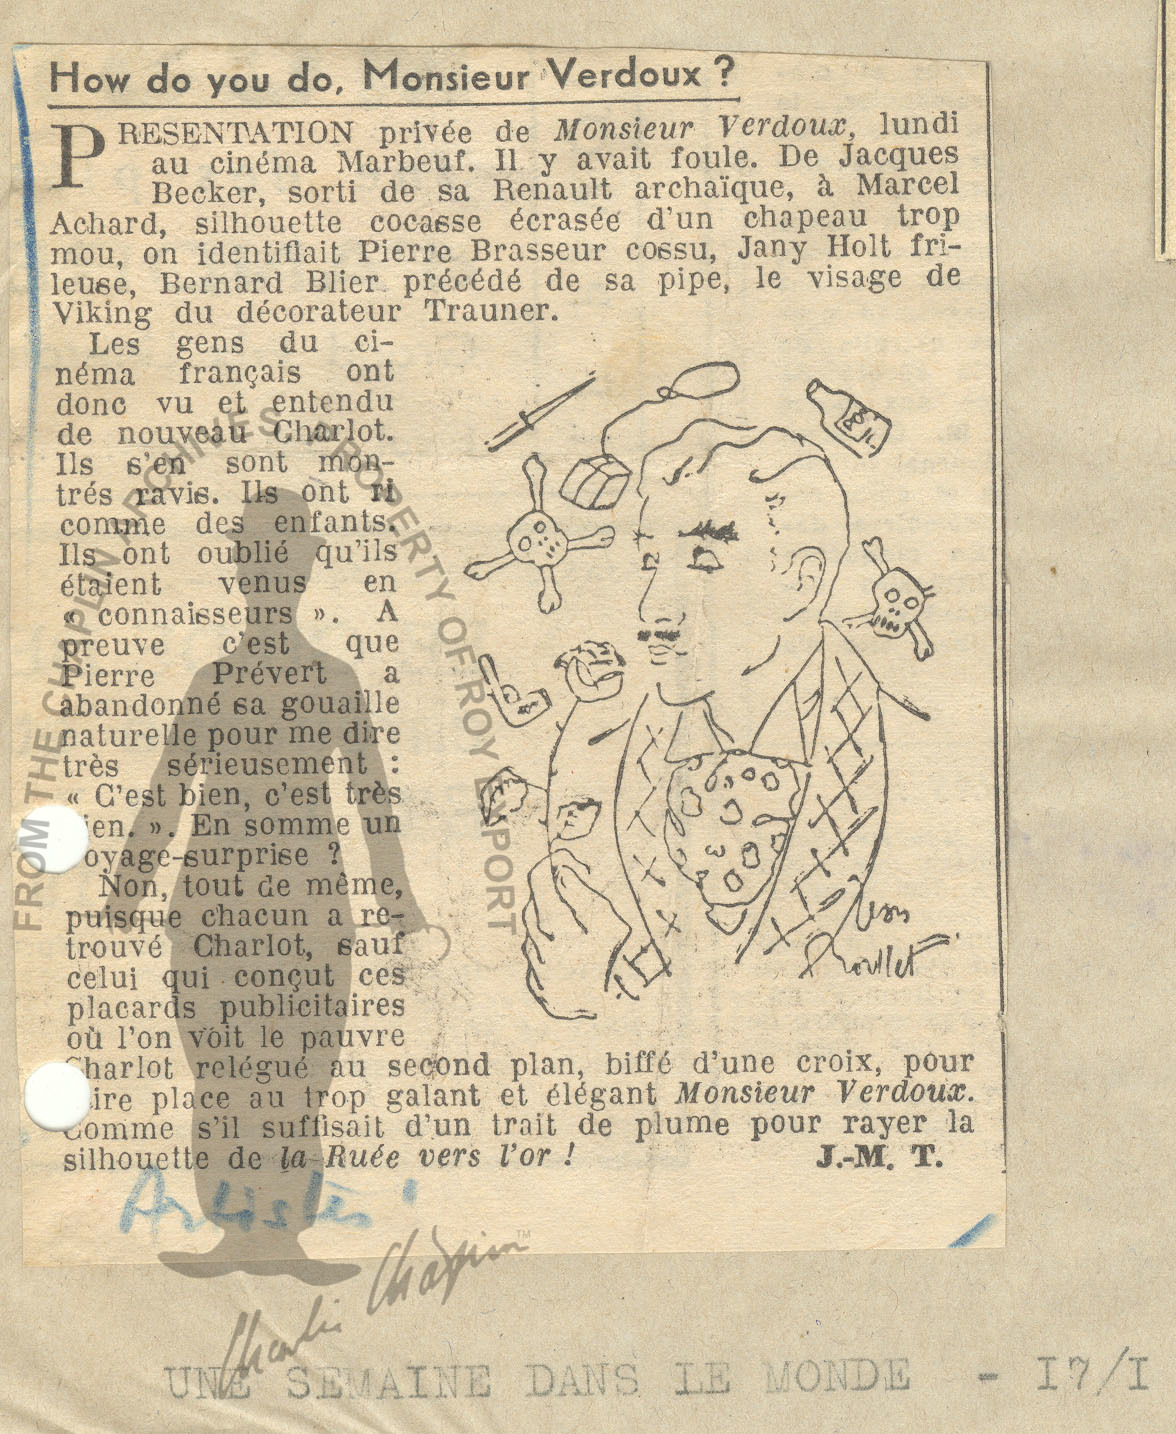 How do you do, Monsieur Verdoux ?
PRESENTATION privée de Monsieur Verdoux, lundi
au cinéma Marbeuf. Il y avait foule. De Jacques
Becker, sorti de sa Renault archaïque, à Marcel
Achard, silhouette cocasse écrasée d'un chapeau trop
mou, on identifiait Pierre Brasseur cossu, Jany Holt fri-
leuse, Bernard Blier précédé de sa pipe, le visage de
Viking du décorateur Trauner.
Les gens du ci-
néma français ont
donc vu et entendu
de nouveau Charlot.
Ils s'en sont mon-
trés ravis. Ils ont ri
comme des enfants.
Ils ont oublié qu'ils
étaient venus en
« connaisseurs ». A
preuve c'est que
Pierre Prévert a
abandonné sa gouaille
naturelle pour me dire
très sérieusement :
« C'est bien, c'est très
ien. ». En somme un
oyage-surprise ?
Non, tout de même,
puisque chacun a re-
trouvé Charlot, sauf
celui qui conçut ces
placards publicitaires
où l'on voit le pauvre
Charlot relégué au second plan, biffé d'une croix, pour
ire place au trop galant et élégant Monsieur Verdoux.
Comme s'il suffisait d'un trait de plume pour rayer la
silhouette de la Ruée vers l'or !
J.-M. T.
Artistes
FROM THE CHAPLIN ARCHIVES - PROPERTY OF ROY EXPORT
Charlie Chaplin TM
UNE SEMAINE DANS LE MONDE - I7/I